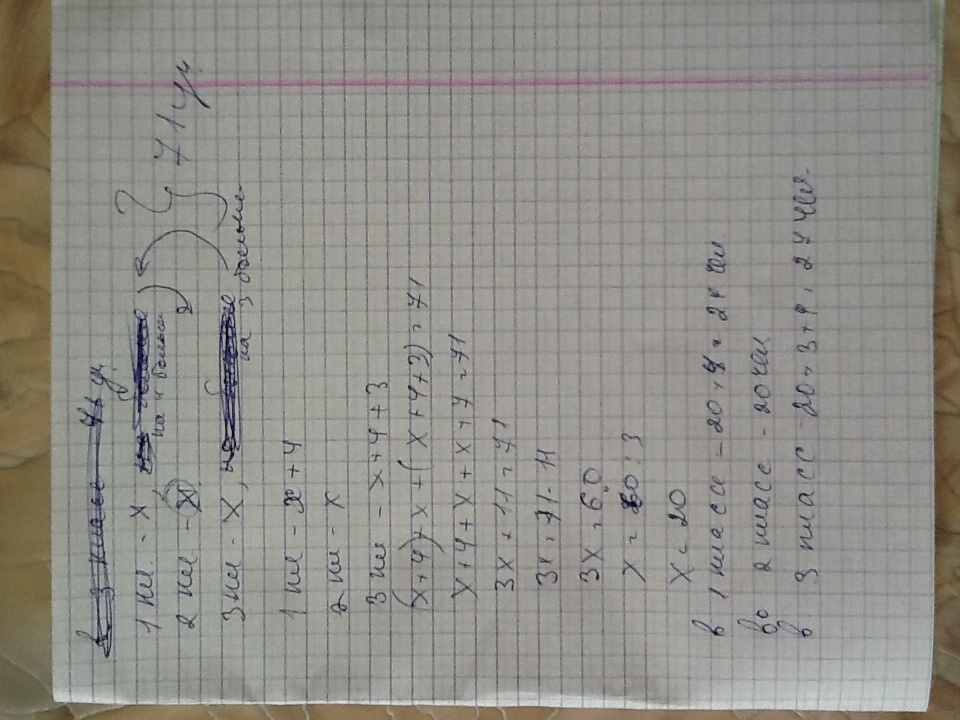 в 3 классе - 71 уч
1 кл. - х, на 4 больше
2 кл - х
3 кл - х, на 3 больше
} 71 уч.
1 кл - х + 4
2 кл - х
3 кл - х + 4 + 3
(х+4)+х+(х+4+3)=71
х+4+х+х+7=71
3х+11=71
3х=71-11
3х=60
х=60:3
х=20
в 1 классе - 20+4=24 чел.
во 2 классе - 20 чел.
в 3 классе 20+3+4=27 чел.